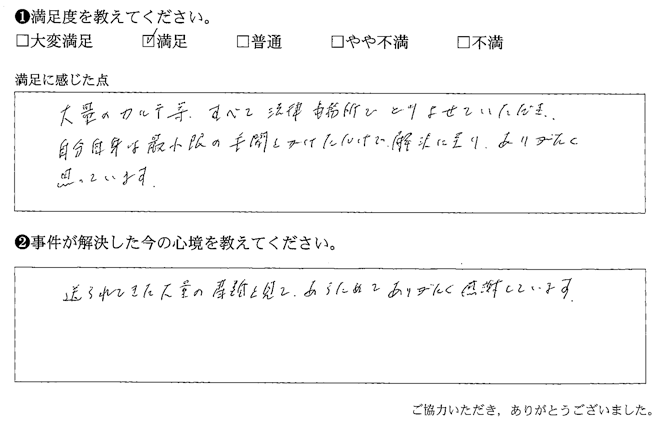 ❶満足度を教えてください。
□大変満足 ☑満足 □普通 □やや不満 □不満
満足に感じた点
大量のカルテ等、すべて法律事務所でとりよせていただき、
自分自身は最小限の手間をかけただけで、解決に至り、ありがたく
思っています。
❷事件が解決した今の心境を教えてください。
送られてきた大量の書類を見て、あらためてありがたく感謝しています。
ご協力いただき，ありがとうございました。